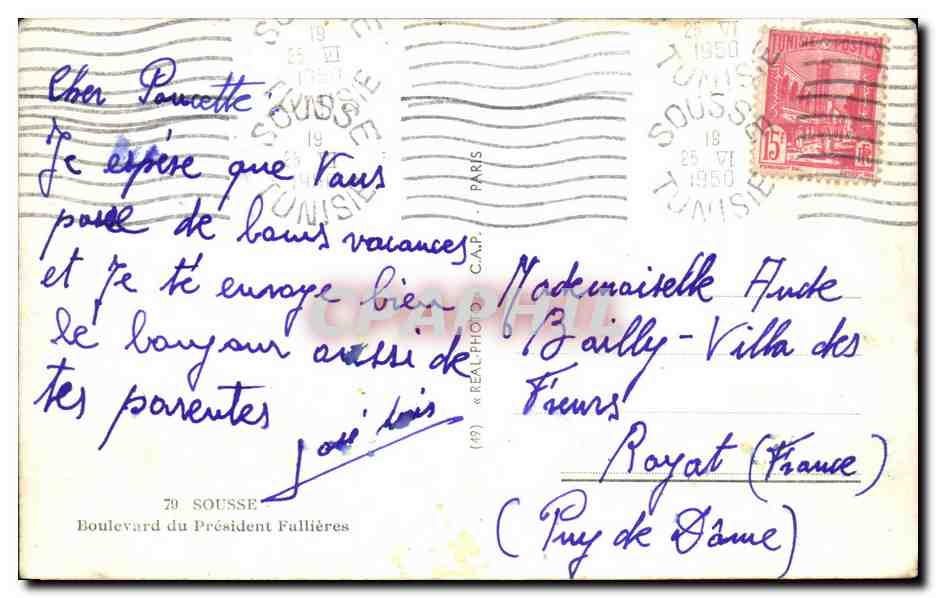 Cher Poucette
Je espére que Vous
passe de bons vacances
et Je té envoye bien
le bonjour aussi de
tes parentes
José Luis
79 SOUSSE
Boulevard du Président Fallières
(49) « REAL-PHOTO C.A.P. - PARIS
TUNISIE POSTES
15F
SOUSSE
19
25 VI
1950
TUNISIE
SOUSSE
18
25 VI
1950
TUNISIE
CPAPHIL
Mademoiselle Aude
Bailly - Villa des
Fleurs
Royat (France)
(Puy de Dâme)